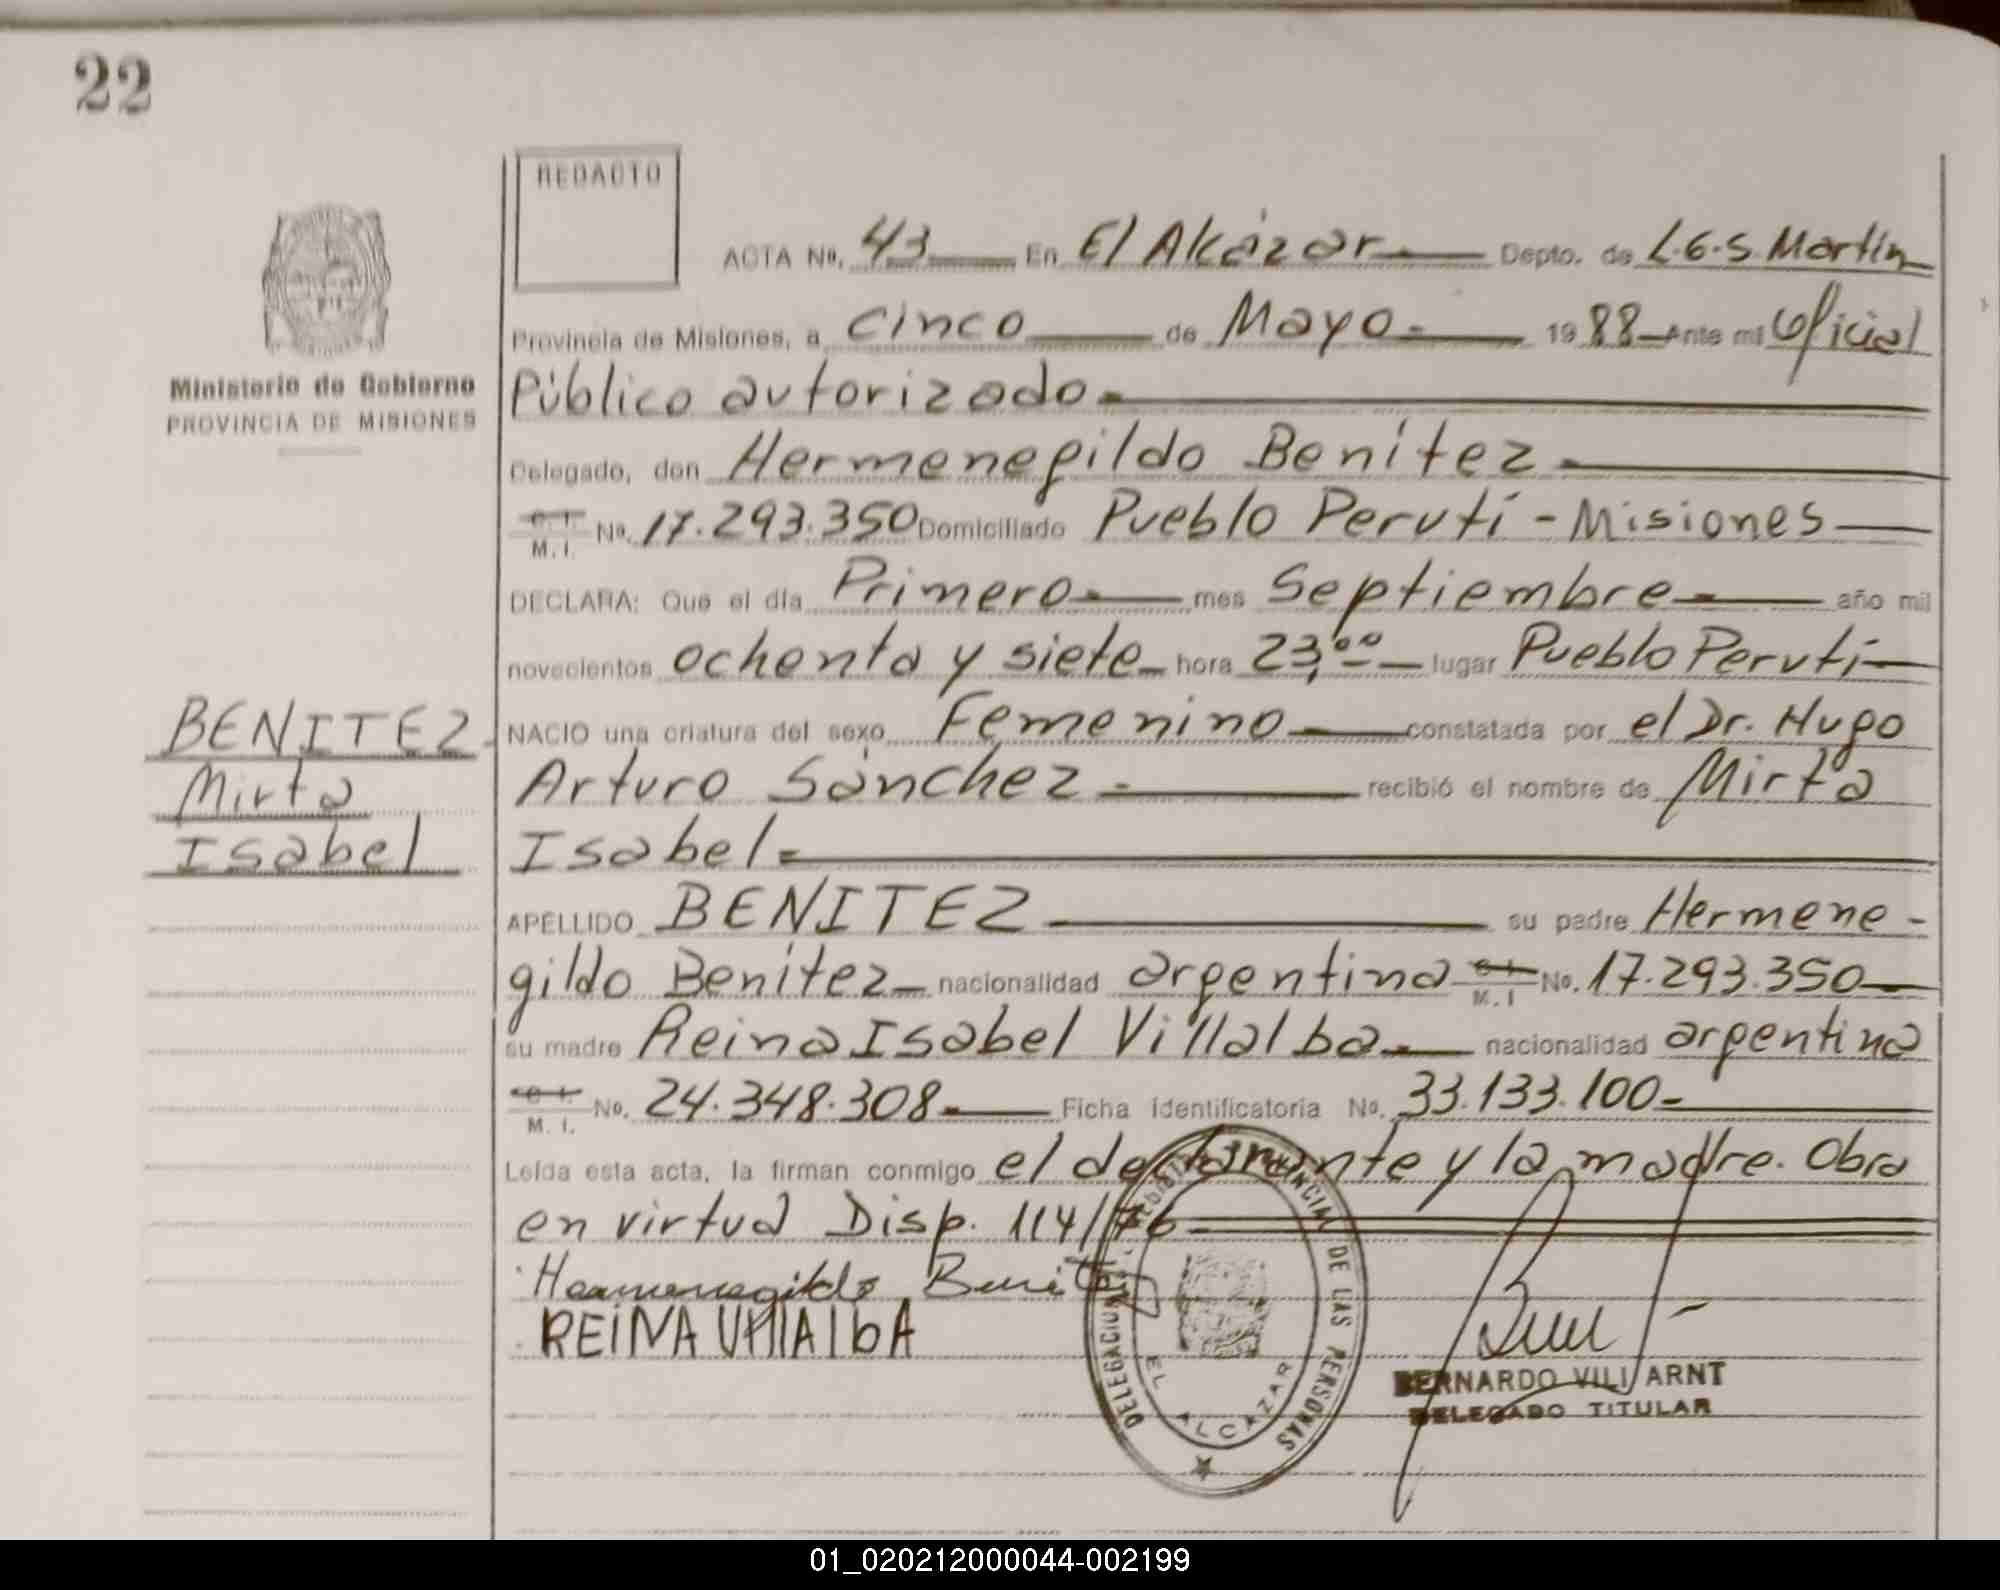 22
REDACTO
ACTA Nº. 43 En El Alcázar Depto. de L.G.S. Martín
Provincia de Misiones, a cinco de Mayo 1988 Ante mi Oficial
Ministerio de Gobierno
PROVINCIA DE MISIONES
Público autorizado
Delegado, don Hermenegildo Benítez
C. I. M. I. Nº. 17.293.350 Domiciliado Pueblo Perutí - Misiones
DECLARA: Que el día Primero mes Septiembre año mil
novecientos ochenta y siete hora 23,00 lugar Pueblo Perutí
NACIO una criatura del sexo Femenino constatada por el Dr. Hugo
Arturo Sánchez recibió el nombre de Mirta
Isabel
BENITEZ
Mirta
Isabel
APELLIDO BENITEZ su padre Hermene-
gildo Benítez nacionalidad argentina C. I. M. I Nº. 17.293.350
su madre Reina Isabel Villalba nacionalidad argentina
C. I. M. I. Nº. 24.348.308 Ficha identificatoria Nº. 33.133.100
Leída esta acta, la firman conmigo el declarante y la madre. Obra
en virtud Disp. 114/76
Hermenegildo Benitez
REINA VIllAlbA
DE LAS PERSONAS
EL ALCAZAR
BERNARDO VILLARNT
DELEGADO TITULAR
01_020212000044-002199